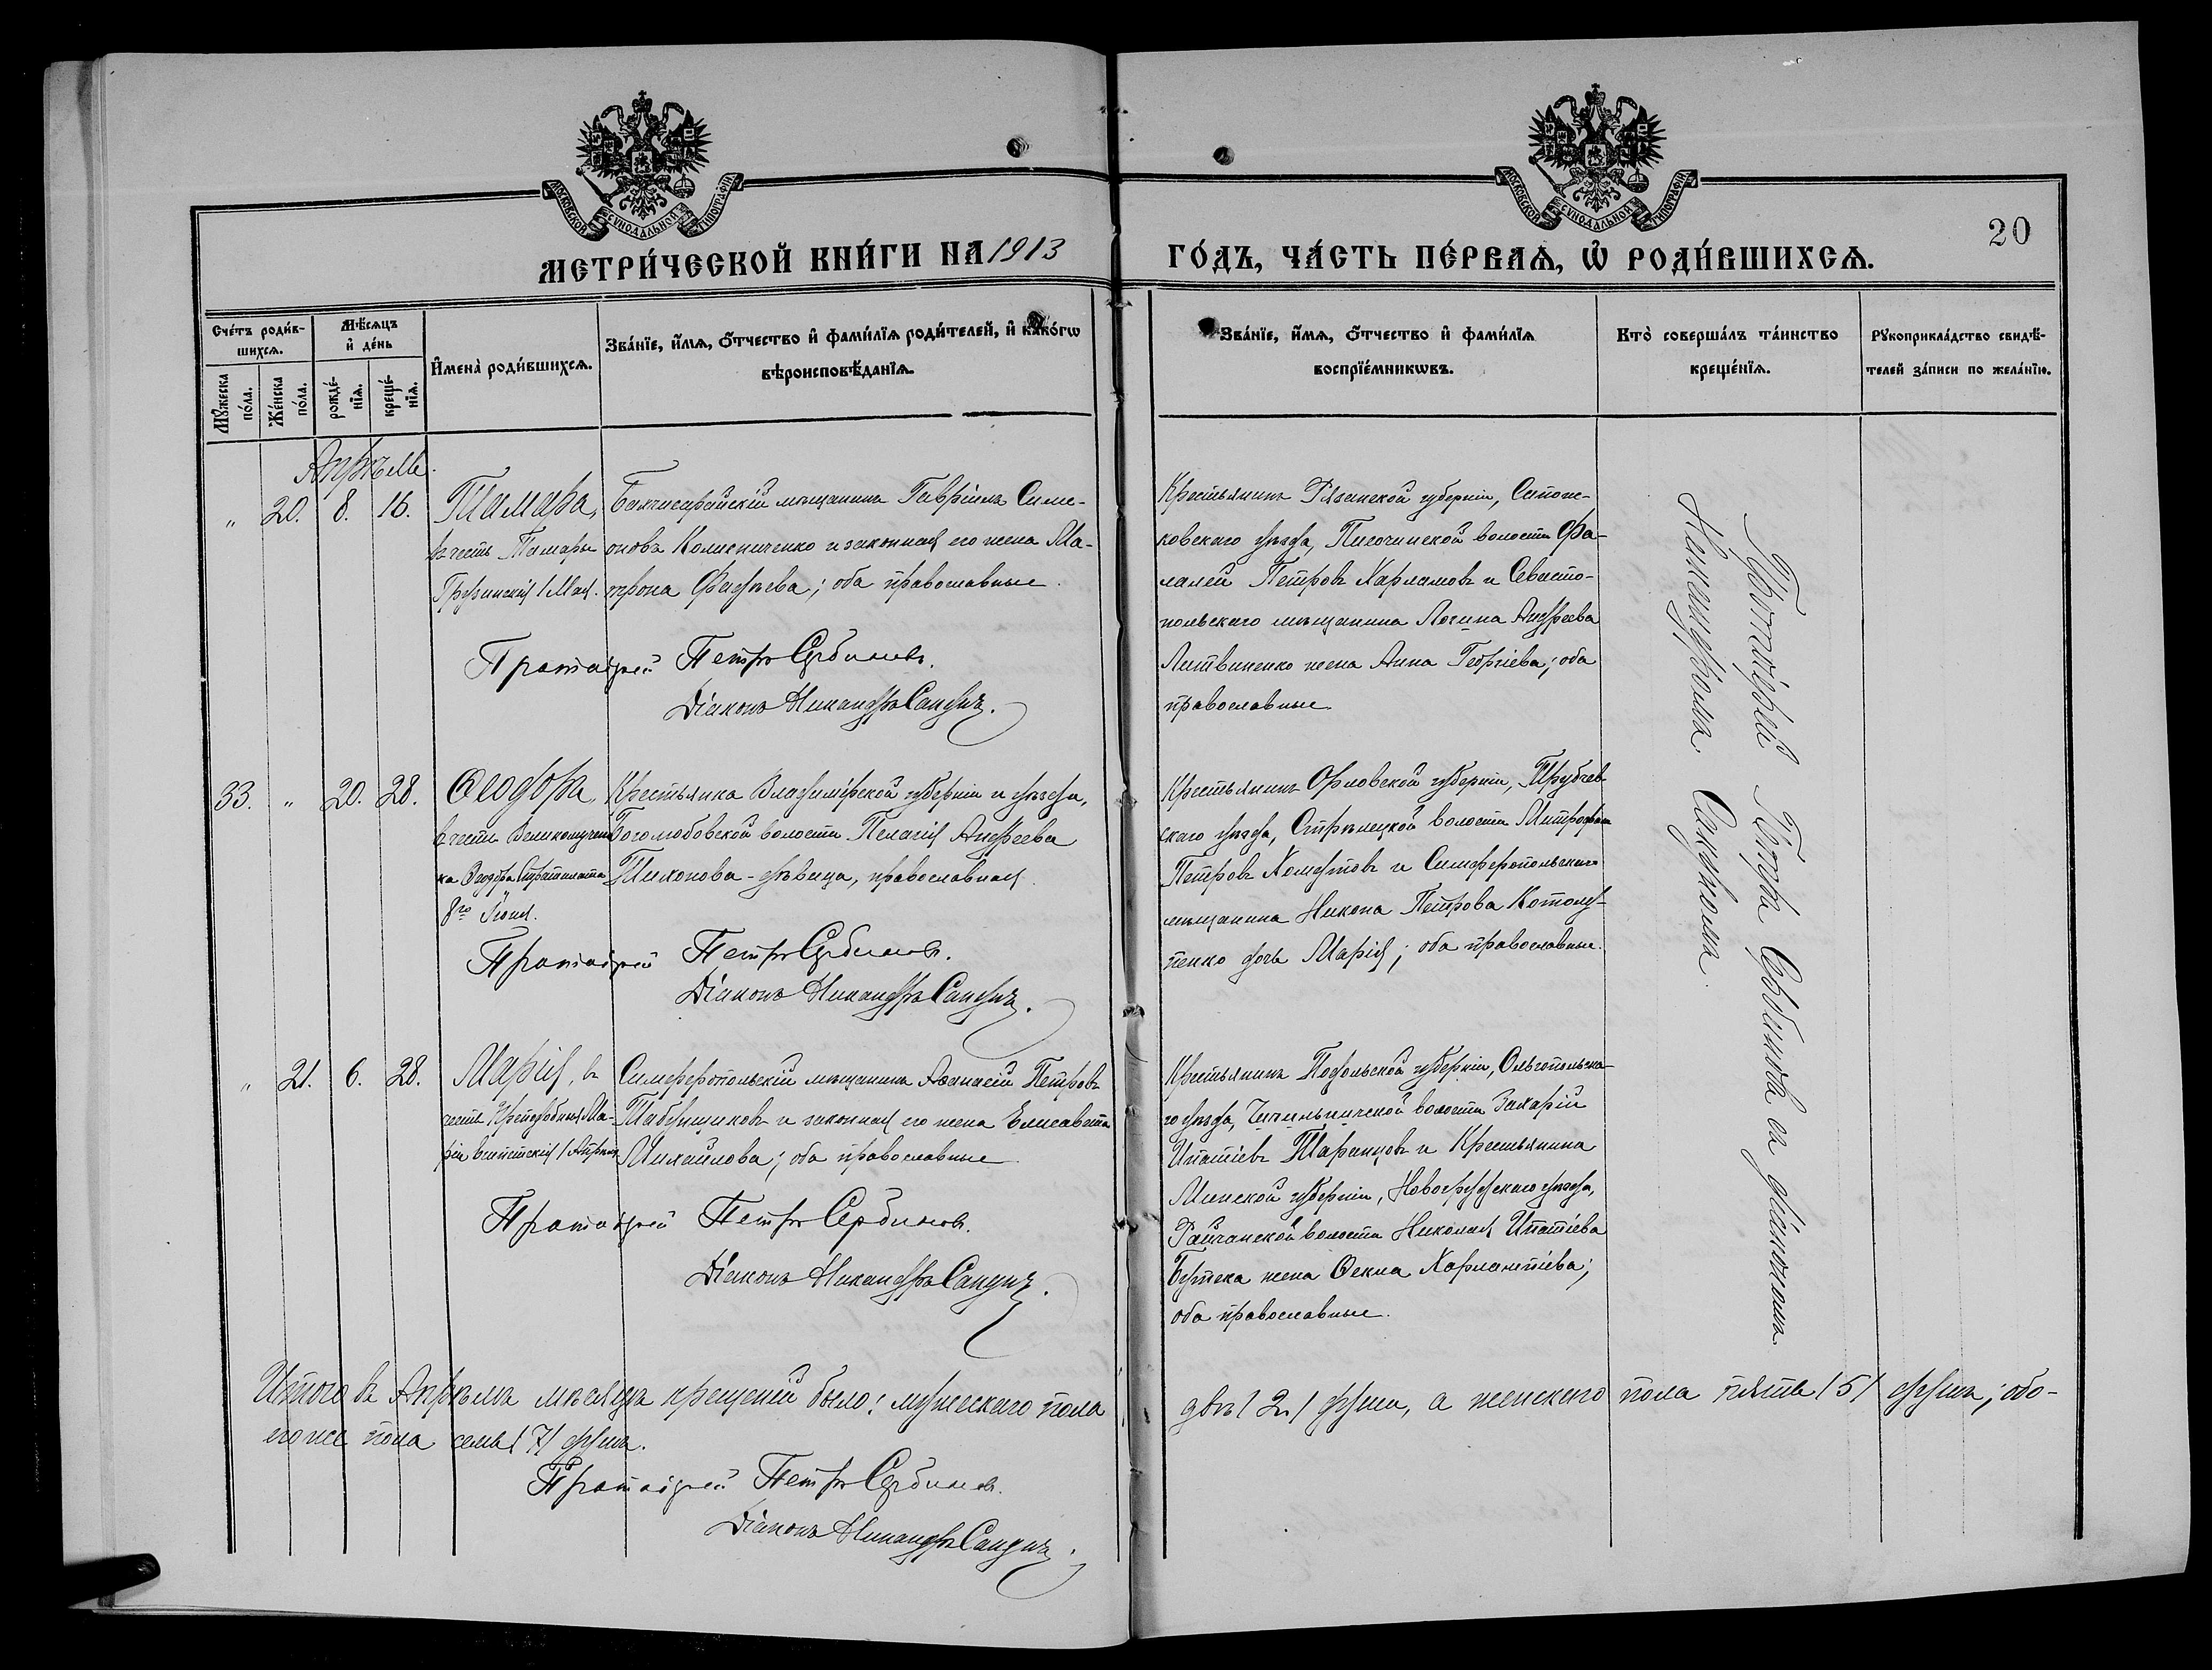 МОСКОВСКОЙ СѴНОДАЛЬНОЙ ТИПОГРАФІИ
МОСКОВСКОЙ СѴНОДАЛЬНОЙ ТИПОГРАФІИ
20
МЕТРИ́ЧЕСКОЙ КНИ́ГИ НА 1913
ГО́ДЪ, ЧА́СТЬ ПЕ́РВАѦ, Ѽ РОДИ́ВШИХСѦ.
Сче́тъ роди́в-
шихсѧ.
Мꙋ́жеска по́ла.
Же́нска по́ла.
Мѣ́сѧцъ
и҆ де́нь
рожде́-
нїѧ.
креще́-
нїѧ.
И҆мена̀ роди́вшихсѧ.
Зва́нїе, и҆́мѧ, ѻ҆́тчество и҆ фами́лїѧ роди́телей, и҆ како́гѡ
вѣроисповѣ́данїѧ.
Зва́нїе, и҆́мѧ, ѻ҆́тчество и҆ фами́лїѧ
воспрїе́мникѡвъ.
Кто̀ соверша́лъ та́инство
креще́нїѧ.
Рꙋкоприкла́дство свидѣ́-
телей за́писи по жела́нїю.
Апрѣль.
" 20. 8. 16.
Тамара,
въ честь Тамары
Грузинскія 1 Мая.
Бахчисарайскій мѣщанинъ Гавріилъ Симе-
оновъ Колисниченко и законная его жена Ма-
трона Фадѣева; оба православные.
Протоіерей Петръ Сербиновъ.
Діаконъ Никандръ Сакунъ.
Крестьянинъ Рязанской губерніи,
ковскаго уѣзда, Пигочинской волости Фа-
лалей Петровъ Харламовъ и Севасто-
польскаго мѣщанина Логина Андреева
Литвиненко жена Анна Георгіева; оба
православные
33. " 20. 28.
Ѳеодоръ,
въ честь Великомучени-
ка Ѳеодора Стратилата
8го Іюня.
Крестьянка Владимірской губерніи и уѣзда,
Боголюбовской волости Пелагія Андреева
Тихонова - дѣвица, православная.
Протоіерей Петръ Сербиновъ.
Діаконъ Никандръ Сакунъ.
Крестьянинъ Орловской губерніи, Трубчев-
скаго уѣзда, Стрѣлецкой волости Митрофанъ
Петровъ Хомутовъ и Симферопольскаго
мѣщанина Никона Петрова
пенко дочь Марія; оба православные.
" 21. 6. 28.
Марія, въ
честь Преподобныя Ма-
ріи Египетскія 1 Апрѣля
Симферопольскій мѣщанинъ Аѳанасій Петровъ
Табунщиковъ и законная его жена Елисавета
Михайлова; оба православные
Протоіерей Петръ Сербиновъ.
Діаконъ Никандръ Сакунъ.
Крестьянинъ Подольской губерніи, Ольгопольска-
го уѣзда, волости Захарій
Ипатіевъ Таранцовъ и Крестьянина
Минской губерніи, Новогрудскаго уѣзда,
Райчанской волости Николая Ипатіева
жена Ѳекла Харлампіева;
оба православные.
Протоіерей Петръ Сербиновъ съ діакономъ
Никандромъ Сакуномъ.
Итого въ Апрѣлѣ мѣсяцѣ крещеній было: мужескаго пола двѣ /2/ души, а женскаго пола пять /5/ душъ; обо-
его же пола семь /7/ душъ.
Протоіерей Петръ Сербиновъ.
Діаконъ Никандръ Сакунъ.